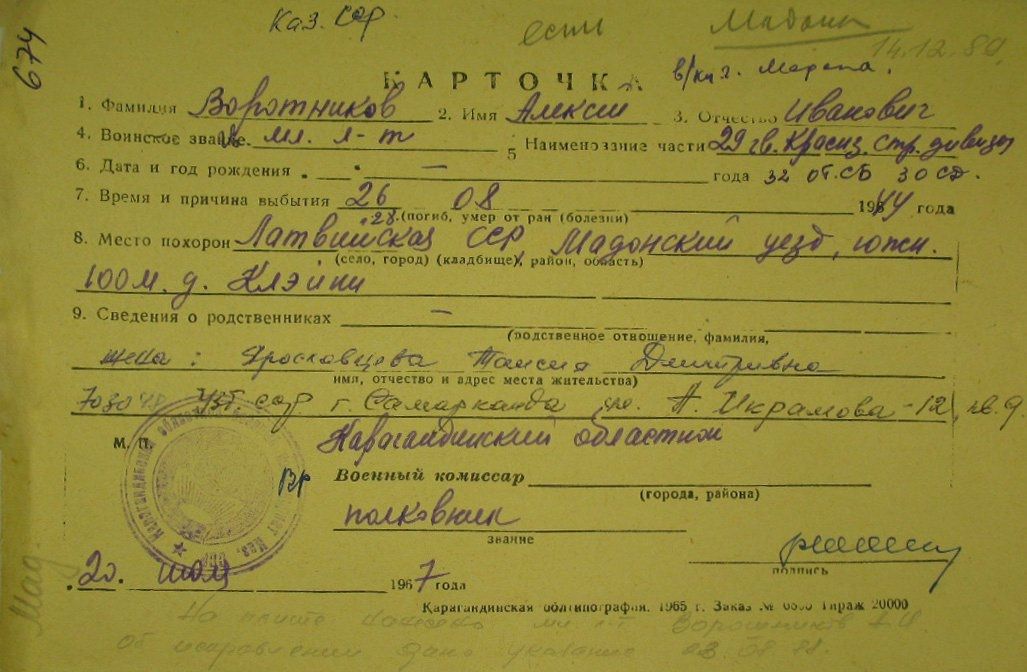 Каз. ССР
есть Мадона
14.12.89
674
КАРТОЧКА в/кл г. Мадона.
1. Фамилия Воротников 2. Имя Алексей 3. Отчество Иванович
4. Воинское звание мл. л-т 5 Наименование части 29 гв. Красн. стр. дивизия
6. Дата и год рождения . — — года 32 от.СБ 30 сд.
7. Время и причина выбытия 26 08 1944 года
28. (погиб, умер от ран (болезни)
8. Место похорон Латвийская ССР, Мадонский уезд, южн.
(село, город) (кладбище), район, область)
100 м. д. Клэйни
9. Сведения о родственниках —
(родственное отношение, фамилия,
жена: Ярославцева Таисия Дмитривна
имя, отчество и адрес места жительства)
703048 Узб ССР г Самарканд А. Икрамова-12, кв. 9
М. П. Карагандинский областной
Вр Военный комиссар
(города, района)
полковник
звание
подпись
20. июля 1967 года
Мад
Карагандинская облтипография. 1965 г. Заказ № Тираж 20000
На плите нанесено мл. л-т Воротников А.И
об исправлении дано указание 23.08.88.